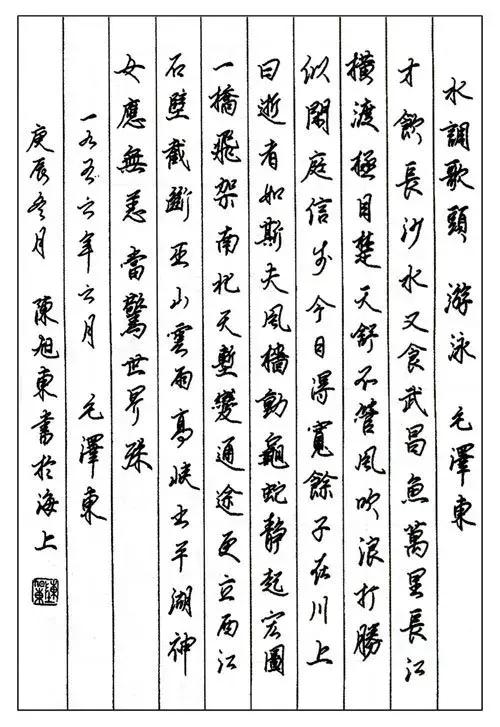 水調歌頭 游泳 毛澤東
才飲長沙水又食武昌魚萬里長江
橫渡極目楚天舒不管風吹浪打勝
似閑庭信步今日得寬餘子在川上
曰逝者如斯夫風檣動龜蛇靜起宏圖
一橋飛架南北天塹變通途更立西江
石壁截斷巫山雲雨高峽出平湖神
女應無恙當驚世界殊
一九五六年六月 毛澤東
庚辰冬月 陳旭東書於海上
陳旭東